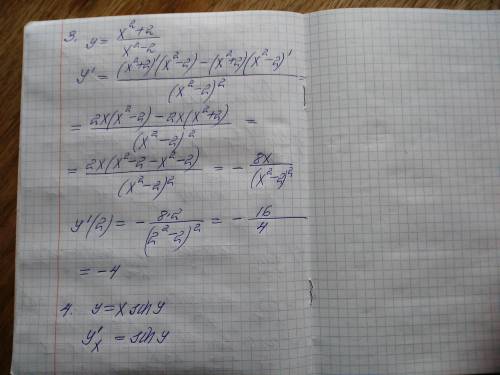 3. y = (x²+2)/(x²-2)
y' = ((x²+2)'(x²-2)-(x²+2)(x²-2)')/(x²-2)² =
= (2x(x²-2)-2x(x²+2))/(x²-2)² =
= (2x(x²-2-x²-2))/(x²-2)² = - 8x/(x²-2)²
y'(2) = - 8·2/(2²-2)² = - 16/4
= -4
4. y = x sin y
y'ₓ = sin y